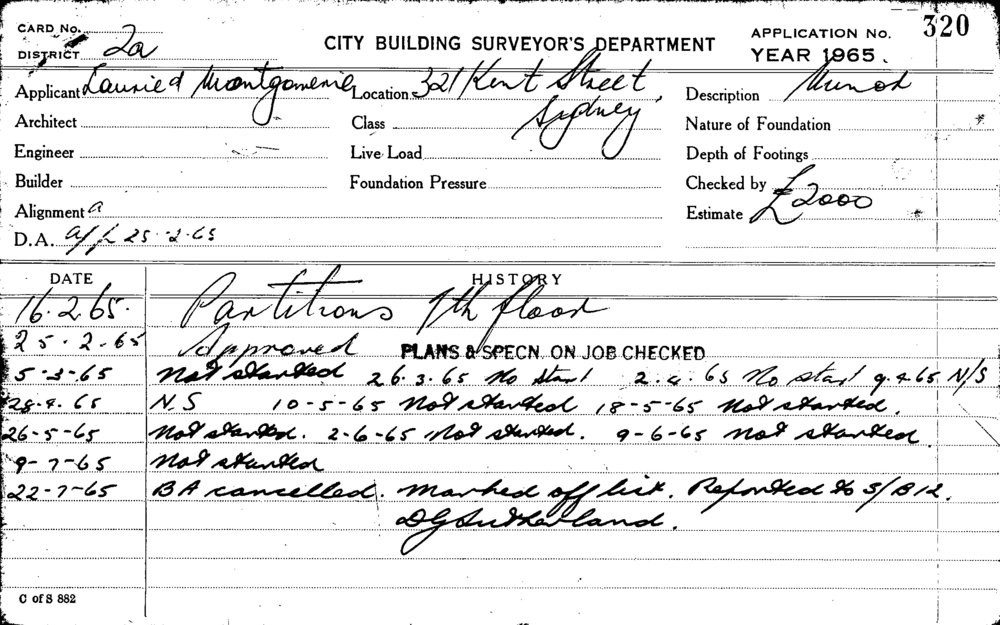 CARD No.
DISTRICT 2a
CITY BUILDING SURVEYOR'S DEPARTMENT
APPLICATION No. 320
YEAR 1965.
Applicant Laurie & Montgomerie Location 321 Kent Street, Sydney Description Minor
Architect Class Nature of Foundation
Engineer Live Load Depth of Footings
Builder Foundation Pressure Checked by
Alignment a Estimate £2000
D.A. 25.2.65
DATE HISTORY
16.2.65. Partitions 7th floor
25.2.65 Approved PLANS & SPECN. ON JOB CHECKED
5-3-65 Not started 26.3.65 No start 2.4.65 No start 9.4.65 N/S
28.4.65 N.S 10-5-65 Not started 18-5-65 Not started.
26-5-65 Not started. 2-6-65 Not started. 9-6-65 Not started.
9-7-65 Not started
22-7-65 BA cancelled. Marked off list. Reported to S/B12.
DG Sutherland.
C of S 882